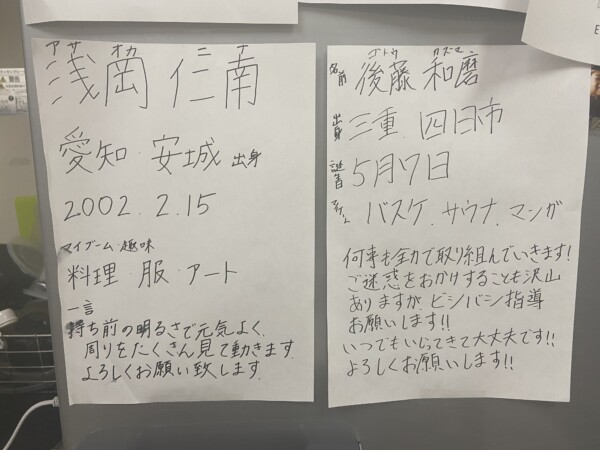 アサ オカ ニ ナ
浅岡 仁南
愛知・安城 出身
2002.2.15
マイブーム・趣味
料理・服・アート
一言
持ち前の明るさで元気よく、
周りをたくさん見て動きます。
よろしくお願い致します。
ゴトウ カズマ
名前 後藤 和磨
出身 三重.四日市
誕生日 5月7日
バスケ.サウナ.マンガ
何事も全力で取り組んでいきます!
ご迷惑をおかけすることも沢山
ありますが、ビシバシ指導
お願いします!!
いつでもいじってきて大丈夫です!!
よろしくお願いします!!